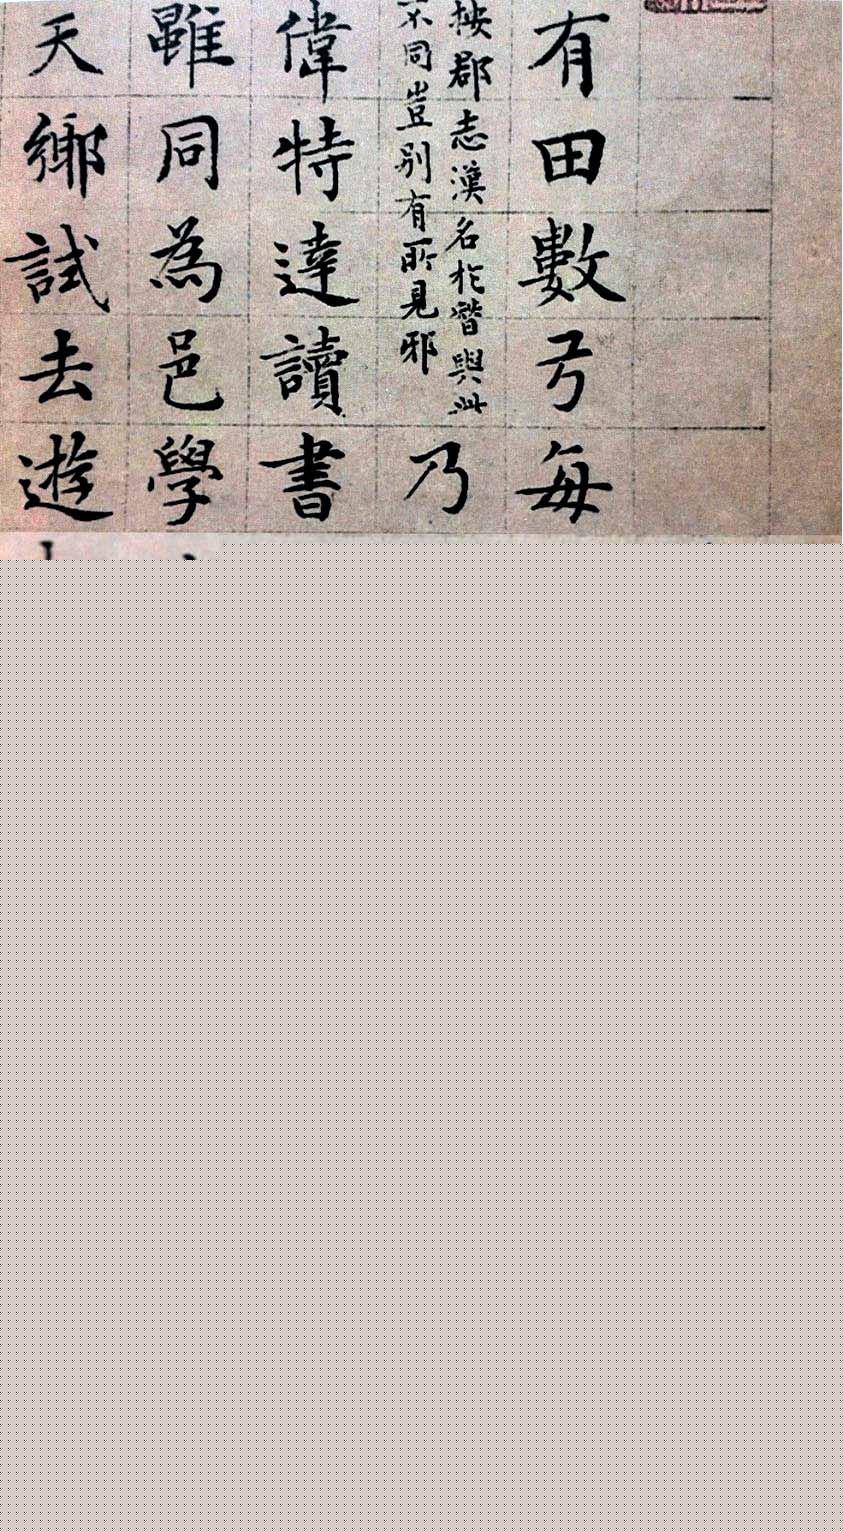 有田數弓每
按郡志漢名扵朁與此
不同豈别有所見邪
乃
偉特達讀書
雖同為邑學
天鄉試去遊